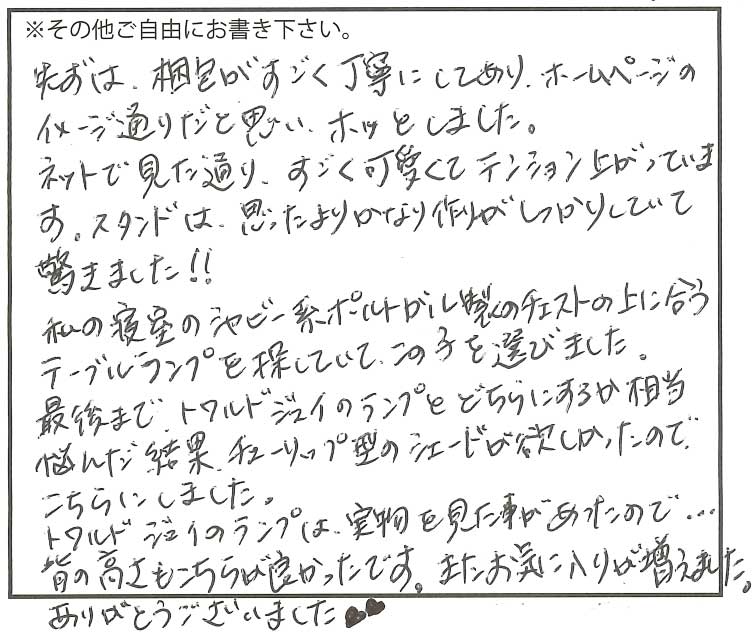 ※その他ご自由にお書き下さい。
先ずは、梱包がすごく丁寧にしてあり、ホームページの
イメージ通りだと思い、ホッとしました。
ネットで見た通り、すごく可愛くてテンション上がっていま
す。スタンドは、思ったよりかなり作りがしっかりしていて
驚きました!!
私の寝室のシャビー系ポルトガル製のチェストの上に合う
テーブルランプを探していて、この子を選びました。
最後まで、トワルドジュイのランプとどちらにするか相当
悩んだ結果、チューリップ型のシェードが欲しかったので、
こちらにしました。
トワルドジュイのランプは、実物を見た事があったので…
背の高さもこちらが良かったです。またお気に入りが増えました。
ありがとうございました♥♥